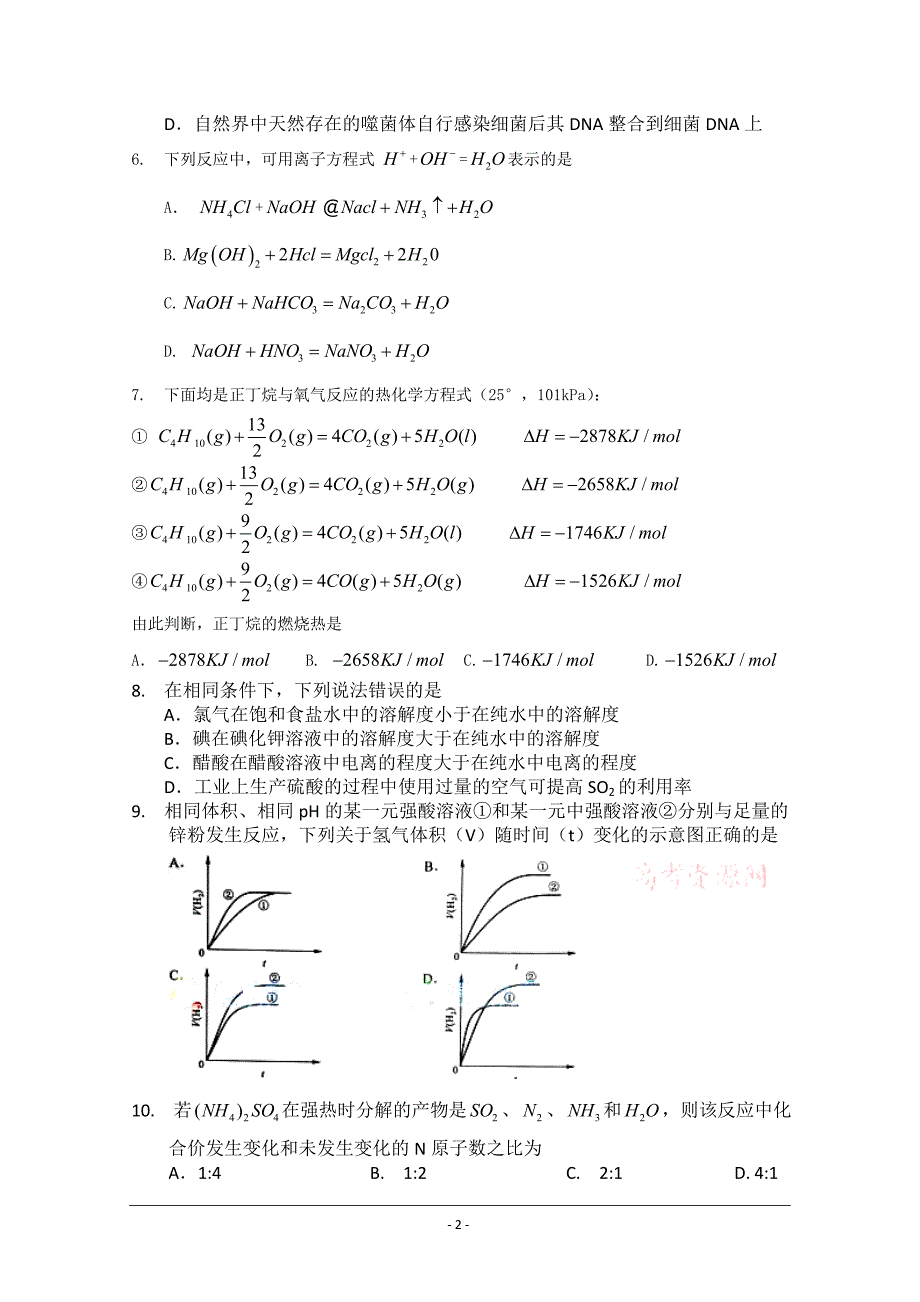 D．自然界中天然存在的噬菌体自行感染细菌后其 DNA 整合到细菌 DNA 上
6. 下列反应中，可用离子方程式 H⁺+OH⁻=H₂O表示的是
A． NH₄Cl+NaOH @Nacl+NH₃↑+H₂O
B. Mg(OH)₂+2Hcl=Mgcl₂+2H₂0
C. NaOH+NaHCO₃=Na₂CO₃+H₂O
D. NaOH+HNO₃=NaNO₃+H₂O
7. 下面均是正丁烷与氧气反应的热化学方程式（25°，101kPa）：
① C₄H₁₀(g)+13/2 O₂(g)=4CO₂(g)+5H₂O(l) ΔH=−2878KJ/mol
②C₄H₁₀(g)+13/2 O₂(g)=4CO₂(g)+5H₂O(g) ΔH=−2658KJ/mol
③C₄H₁₀(g)+9/2 O₂(g)=4CO₂(g)+5H₂O(l) ΔH=−1746KJ/mol
④C₄H₁₀(g)+9/2 O₂(g)=4CO(g)+5H₂O(g) ΔH=−1526KJ/mol
由此判断，正丁烷的燃烧热是
A．−2878KJ/mol B. −2658KJ/mol C.−1746KJ/mol D.−1526KJ/mol
8. 在相同条件下，下列说法错误的是
A．氯气在饱和食盐水中的溶解度小于在纯水中的溶解度
B．碘在碘化钾溶液中的溶解度大于在纯水中的溶解度
C．醋酸在醋酸溶液中电离的程度大于在纯水中电离的程度
D．工业上生产硫酸的过程中使用过量的空气可提高 SO₂ 的利用率
9. 相同体积、相同 pH 的某一元强酸溶液①和某一元中强酸溶液②分别与足量的
锌粉发生反应，下列关于氢气体积（V）随时间（t）变化的示意图正确的是
A. V(H₂) ② ① 0 t
B. V(H₂) ① ② 0 t
高考资源网
C. V(H₂) ② ① 0 t
D. V(H₂) ② ① 0
10. 若(NH₄)₂SO₄在强热时分解的产物是SO₂、N₂、NH₃和H₂O，则该反应中化
合价发生变化和未发生变化的 N 原子数之比为
A．1:4 B. 1:2 C. 2:1 D. 4:1
- 2 -